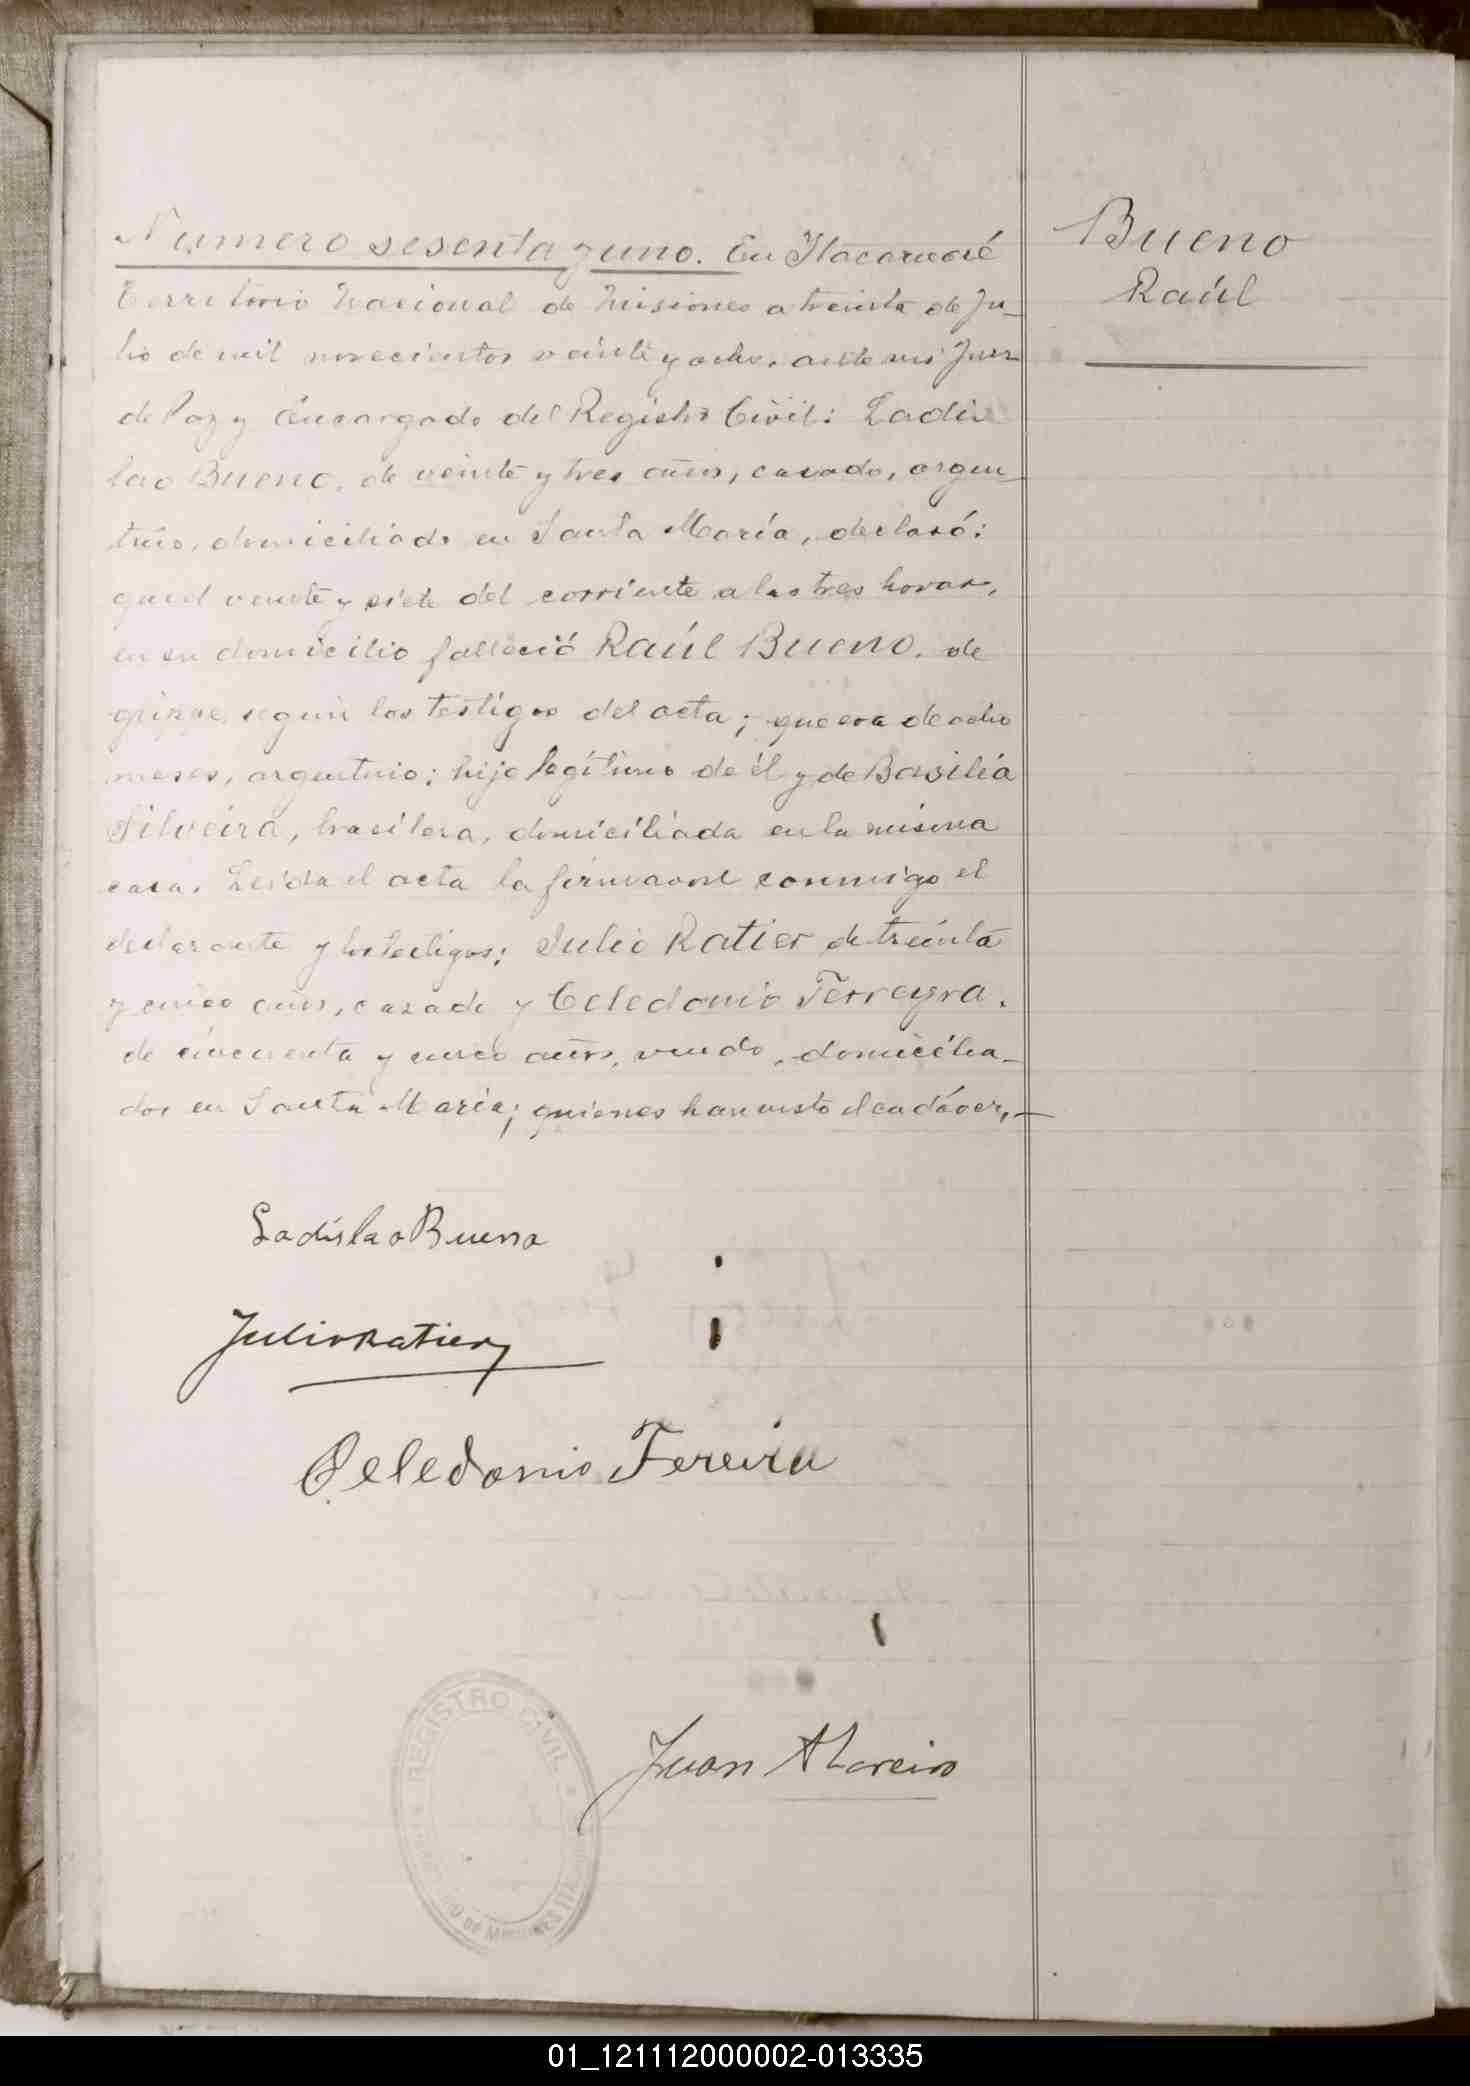 Numero sesenta y uno. En Itacaruaré
Territorio Nacional de Misiones a treinta de Ju-
lio de mil novecientos veinte y ocho, ante mi Juez
de Paz y Encargado del Registro Civil: Ladis
lao Bueno, de veinte y tres años, casado, argen
tino, domiciliado en Santa María, declaró:
que el veinte y siete del corriente a las tres horas,
en su domicilio falleció Raúl Bueno, de
gripe, según los testigos del acta; que era de ocho
meses, argentino; hijo legítimo de él y de Basilia
Silveira, brasilera, domiciliada en la misma
casa. Leida el acta la firmaron conmigo el
declarante y los testigos: Julio Ratier de treinta
y cinco años, casado y Celedonio Ferreyra,
de cincuenta y cinco años, viudo, domicilia-
dos en Santa María; quienes han visto el cadáver.—
Bueno
Raúl
Ladislao Bueno
Julio Ratier
Celedonio Fereira
Juan
REGISTRO CIVIL
DE MISIONES
01_121112000002-013335